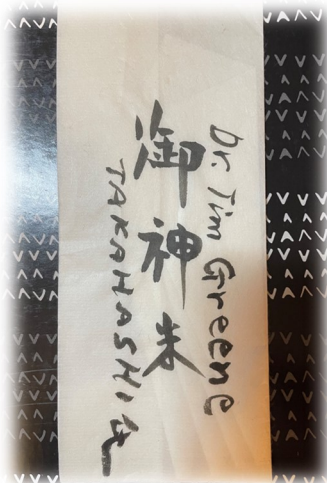 Dr. Tim Greene
御神米
TAKAHASHI